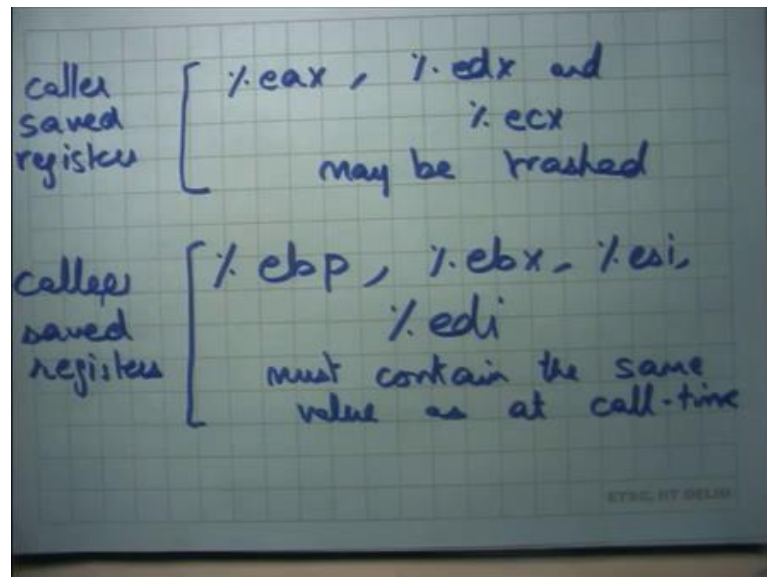 caller
saved
registers
%eax, %edx and
%ecx
may be trashed
callee
saved
registers
%ebp, %ebx, %esi,
%edi
must contain the same
value as at call-time
ETSC, IIT DELHI